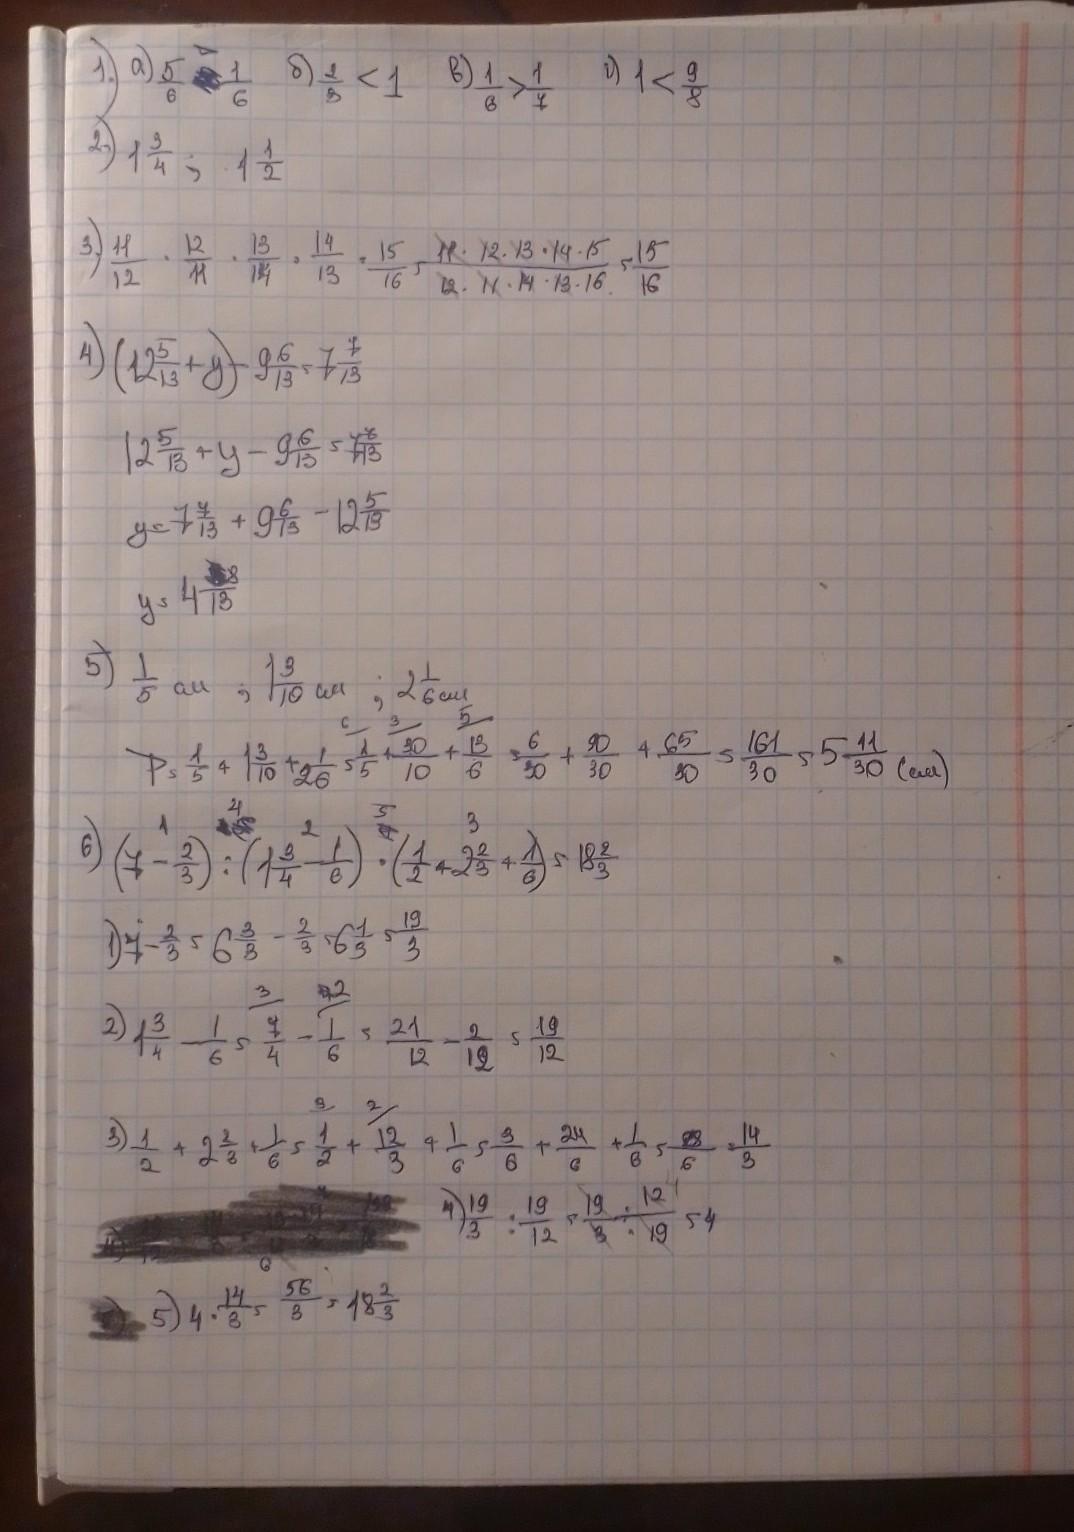 1.) а) 5/6 > 1/6 б) 2/3 < 1 в) 1/6 > 1/7 г) 1 < 9/8
2.) 1 3/4 ; 1 1/2
3) 11/12 · 12/11 · 13/14 · 14/13 · 15/16 = 11 · 12 · 13 · 14 · 15 / 12 · 11 · 14 · 13 · 16 = 15/16
4) (12 5/13 + y) - 9 6/13 = 7 7/13
12 5/13 + y - 9 6/13 = 7 7/13
y = 7 7/13 + 9 6/13 - 12 5/13
y = 4 8/13
5) 1/5 см ; 1 3/10 см ; 2 1/6 см
6 3 5
P = 1/5 + 1 3/10 + 2 1/6 = 1/5 + 30/10 + 13/6 = 6/30 + 90/30 + 65/30 = 161/30 = 5 11/30 (см)
1 4 2 5 3
6) (7 - 2/3) : (1 3/4 - 1/6) · (1/2 + 2 2/3 + 1/6) = 18 2/3
1) 7 - 2/3 = 6 3/3 - 2/3 = 6 1/3 = 19/3
3 2
2) 1 3/4 - 1/6 = 7/4 - 1/6 = 21/12 - 2/12 = 19/12
3 2
3) 1/2 + 2 2/3 + 1/6 = 1/2 + 12/3 + 1/6 = 3/6 + 24/6 + 1/6 = 28/6 = 14/3
4) 19/3 : 19/12 = 19/3 : 12/19 = 4
5) 4 · 14/3 = 56/3 = 18 2/3